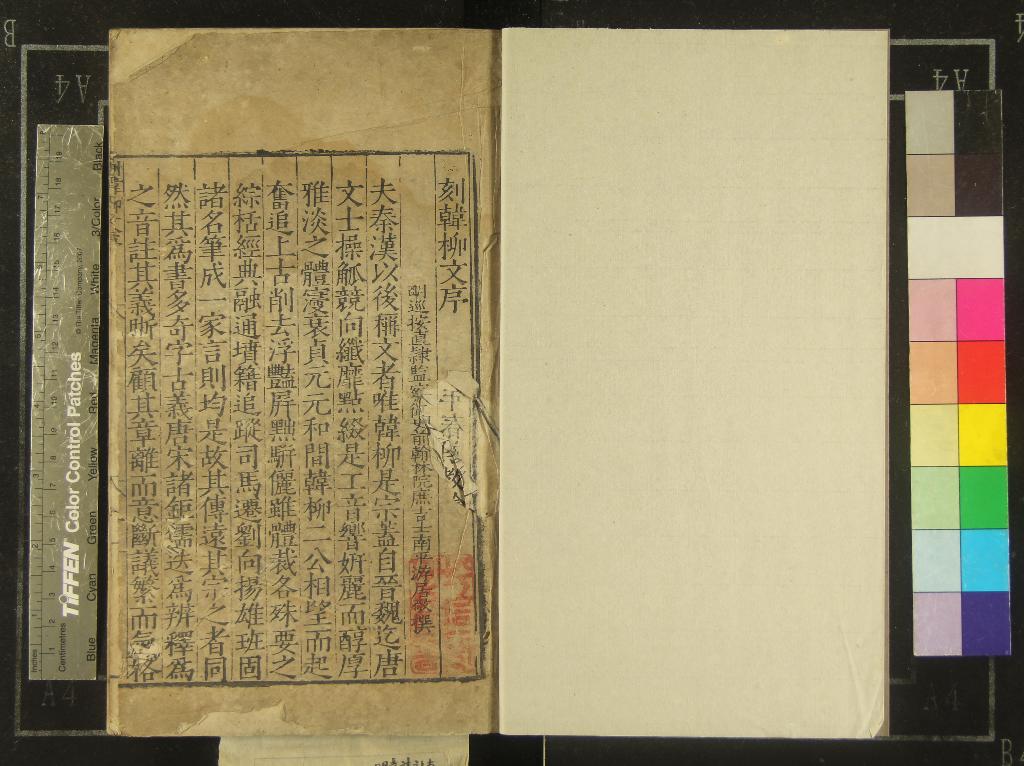 刻韓柳文序
巡按直隸監察御史前翰林院庶吉士南平游居敬撰
夫秦漢以後稱文者唯韓柳是宗蓋自晉魏迄唐
文士操觚競向纖靡點綴是工音響妍麗而醇厚
雅淡之體寖衰貞元元和間韓柳二公相望而起
奮追上古削去浮豔屏黜駢儷雖體裁各殊要之
綜栝經典融通墳籍追蹤司馬遷劉向揚雄班固
諸名筆成一家言則均是故其傳遠其宗之者同
然其爲書多奇字古義唐宋諸鉅儒迭爲辨釋爲
之音註其義晣矣顧其章離而意斷議繁而氣格
TIFFEN Color Control Patches
© The Tiffen Company, 2007
Inches
Centimetres
Blue
Cyan
Green
Yellow
Red
Magenta
White
3/Color
Black
A4
A4
A4
A4
B
B